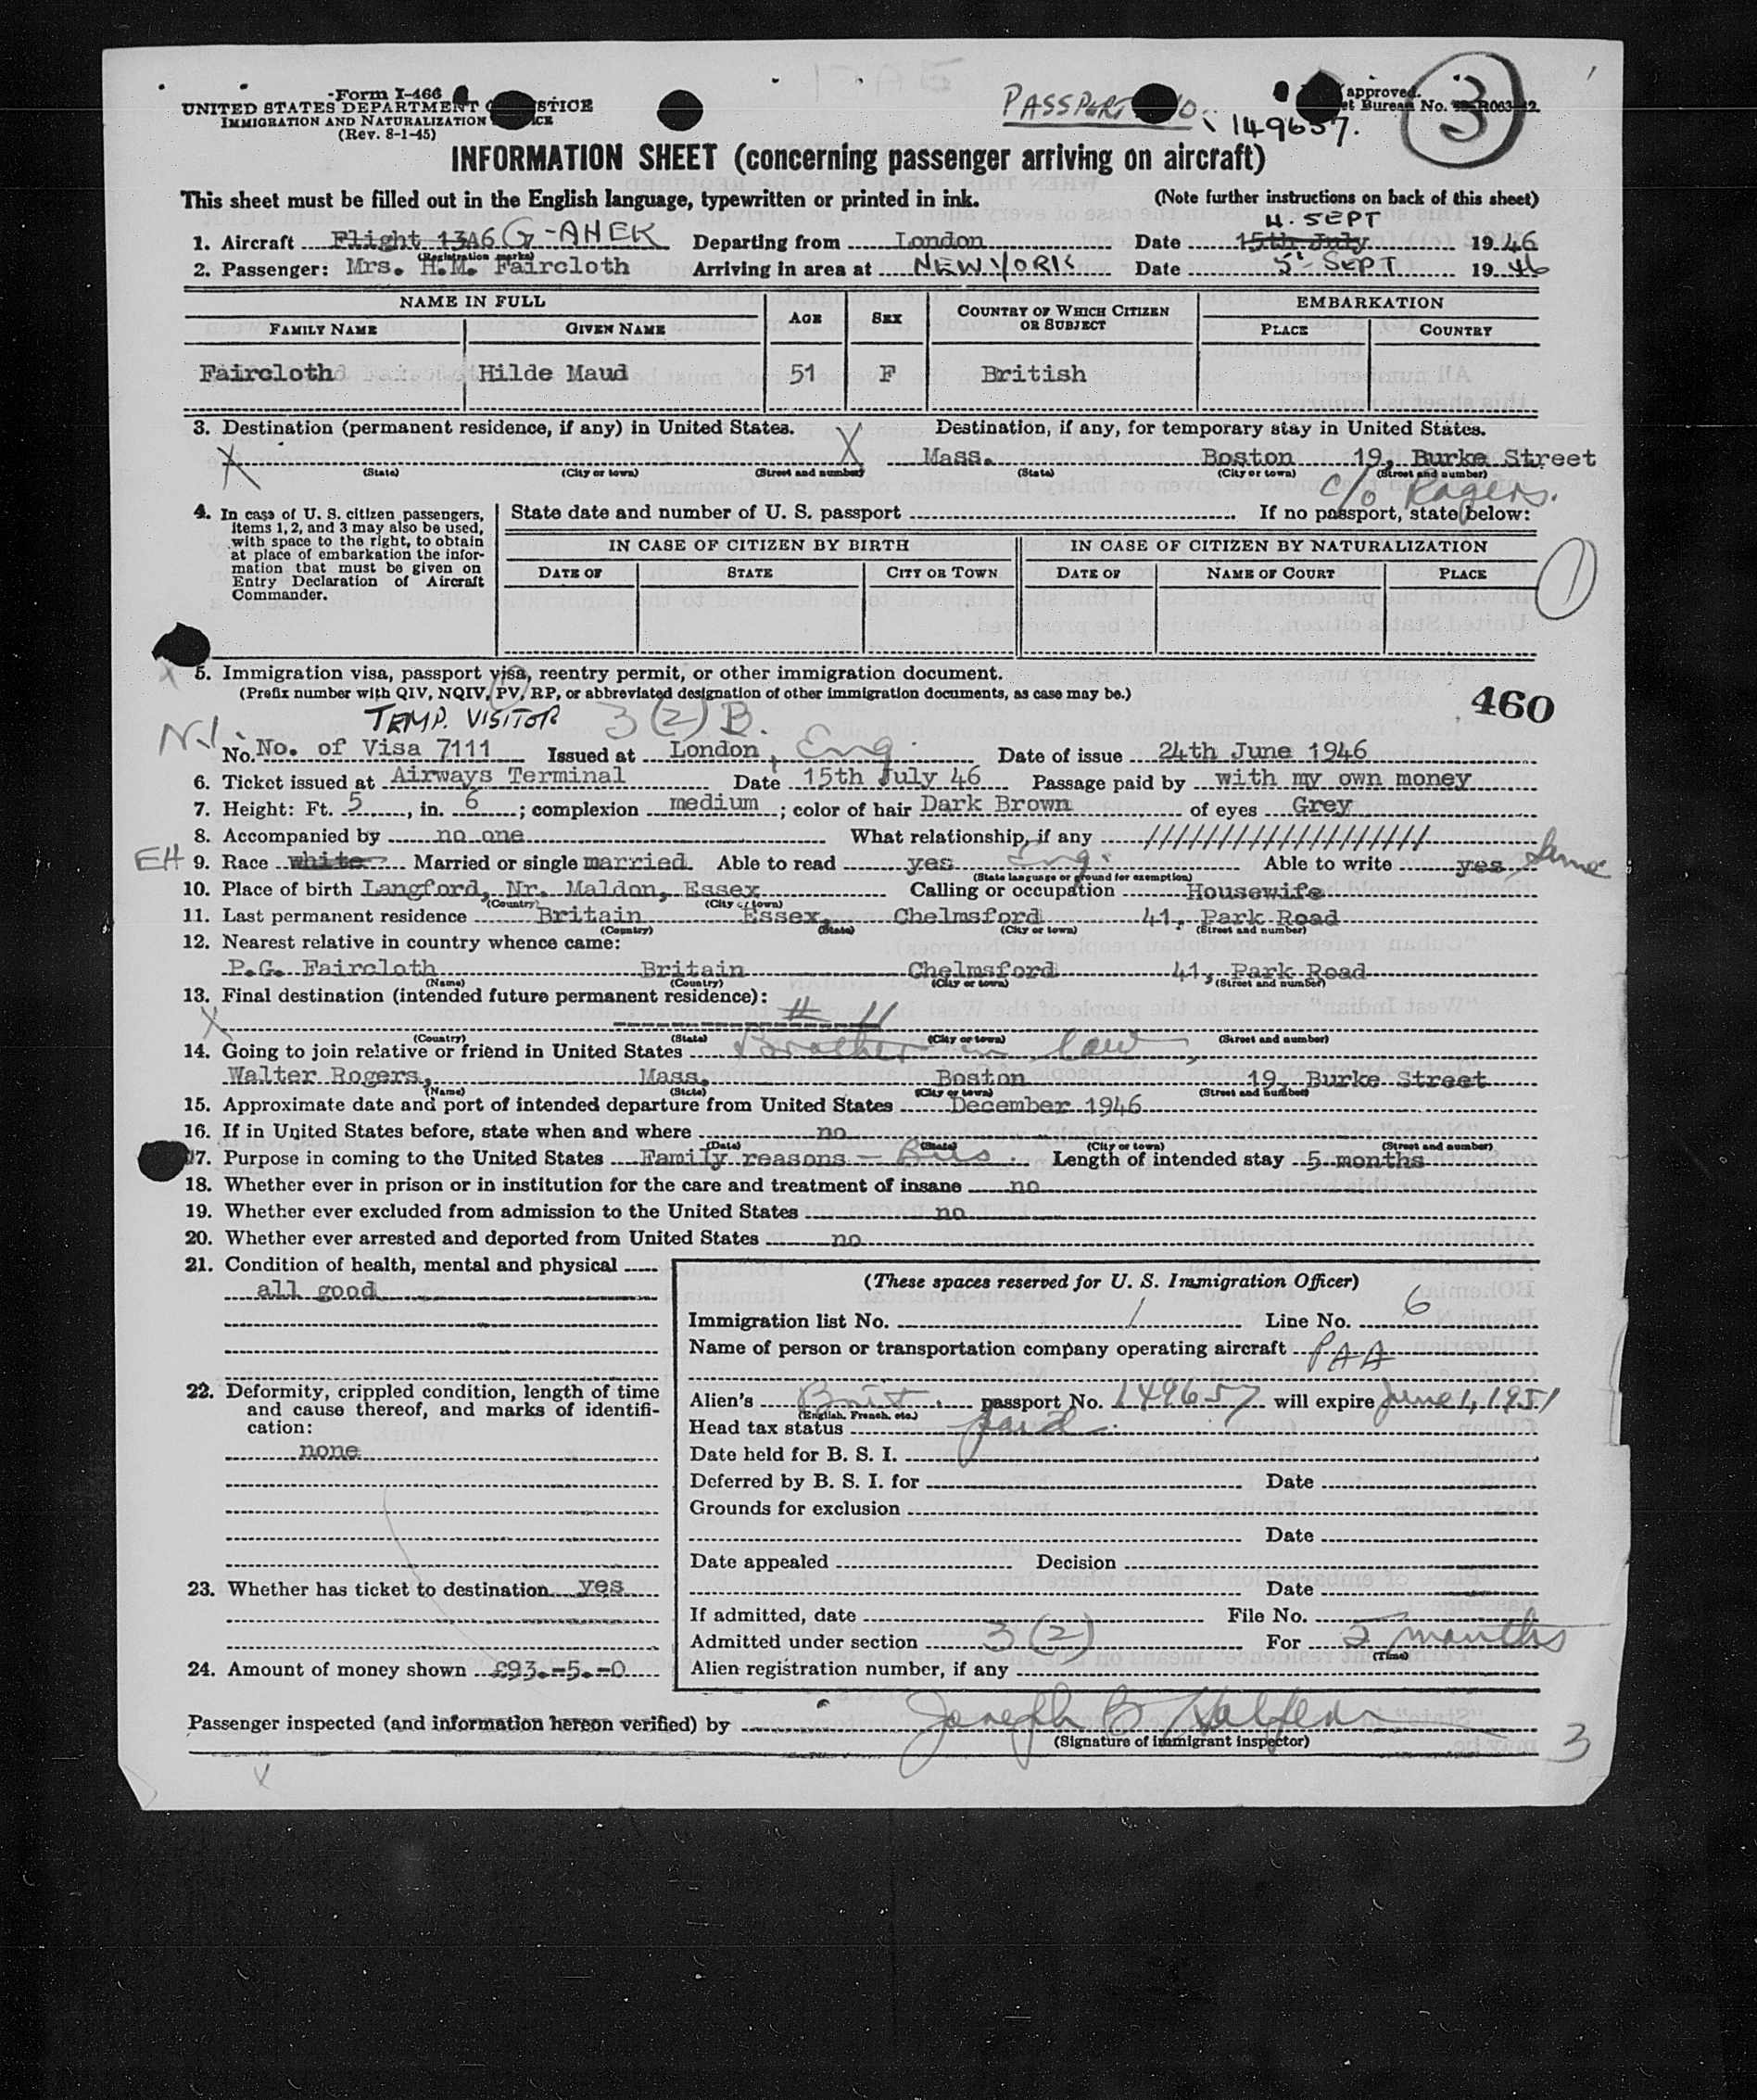 Form I-466
UNITED STATES DEPARTMENT STICE
IMMIGRATION AND NATURALIZATION ICE
(Rev. 8-1-45)
PASSPORT
149657.
approved.
et Bureau No.
3
INFORMATION SHEET (concerning passenger arriving on aircraft)
This sheet must be filled out in the English language, typewritten or printed in ink.
(Note further instructions on back of this sheet)
4. SEPT
1. Aircraft Flight 13A6 G-AHEK Departing from London Date 15th July 1946
(Registration marks)
2. Passenger: Mrs. H.M. Faircloth Arriving in area at NEW YORK Date 5 SEPT 1946
NAME IN FULL AGE SEX COUNTRY OF WHICH CITIZEN OR SUBJECT EMBARKATION
FAMILY NAME GIVEN NAME PLACE COUNTRY
Faircloth Hilde Maud 51 F British
3. Destination (permanent residence, if any) in United States. X Destination, if any, for temporary stay in United States.
X Mass. Boston 19, Burke Street
(State) (City or town) (Street and number) (State) (City or town) (Street and number)
c/o Rogers.
4. In case of U. S. citizen passengers, items 1, 2, and 3 may also be used, with space to the right, to obtain at place of embarkation the information that must be given on Entry Declaration of Aircraft Commander.
State date and number of U. S. passport If no passport, state below:
IN CASE OF CITIZEN BY BIRTH IN CASE OF CITIZEN BY NATURALIZATION
DATE OF STATE CITY OR TOWN DATE OF NAME OF COURT PLACE
1
5. Immigration visa, passport visa, reentry permit, or other immigration document.
(Prefix number with QIV, NQIV, PV, RP, or abbreviated designation of other immigration documents, as case may be.)
460
TEMP. VISITOR 3(2) B.
No. No. of Visa 7111 Issued at London, Eng. Date of issue 24th June 1946
6. Ticket issued at Airways Terminal Date 15th July 46 Passage paid by with my own money
7. Height: Ft. 5, in. 6; complexion medium; color of hair Dark Brown of eyes Grey
8. Accompanied by no one What relationship, if any ////////////////////
EH 9. Race white Married or single married Able to read yes Eng. Able to write yes Same
(State language or ground for exemption)
10. Place of birth Langford, Nr. Maldon, Essex Calling or occupation Housewife
(Country) (City or town)
11. Last permanent residence Britain Essex, Chelmsford 41, Park Road
(Country) (State) (City or town) (Street and number)
12. Nearest relative in country whence came:
P.G. Faircloth Britain Chelmsford 41, Park Road
(Name) (Country) (City or town) (Street and number)
13. Final destination (intended future permanent residence):
X
(Country) (State) (City or town) (Street and number)
14. Going to join relative or friend in United States Brother in law,
Walter Rogers, Mass. Boston 19, Burke Street
(Name) (State) (City or town) (Street and number)
15. Approximate date and port of intended departure from United States December 1946
16. If in United States before, state when and where no
(Date) (State) (City or town) (Street and number)
17. Purpose in coming to the United States Family reasons - Bus. Length of intended stay 5 months
18. Whether ever in prison or in institution for the care and treatment of insane no
19. Whether ever excluded from admission to the United States no
20. Whether ever arrested and deported from United States no
21. Condition of health, mental and physical
all good
22. Deformity, crippled condition, length of time and cause thereof, and marks of identification:
none
23. Whether has ticket to destination yes
24. Amount of money shown £93.-5.-0
(These spaces reserved for U. S. Immigration Officer)
Immigration list No. 1 Line No. 6
Name of person or transportation company operating aircraft PAA
Alien's Brit. passport No. 149657 will expire June 1, 1951
(English, French, etc.)
Head tax status paid
Date held for B. S. I.
Deferred by B. S. I. for Date
Grounds for exclusion
Date
Date appealed Decision
Date
If admitted, date File No.
Admitted under section 3(2) For 5 months
(Time)
Alien registration number, if any
Passenger inspected (and information hereon verified) by Joseph B
(Signature of immigrant inspector)
3